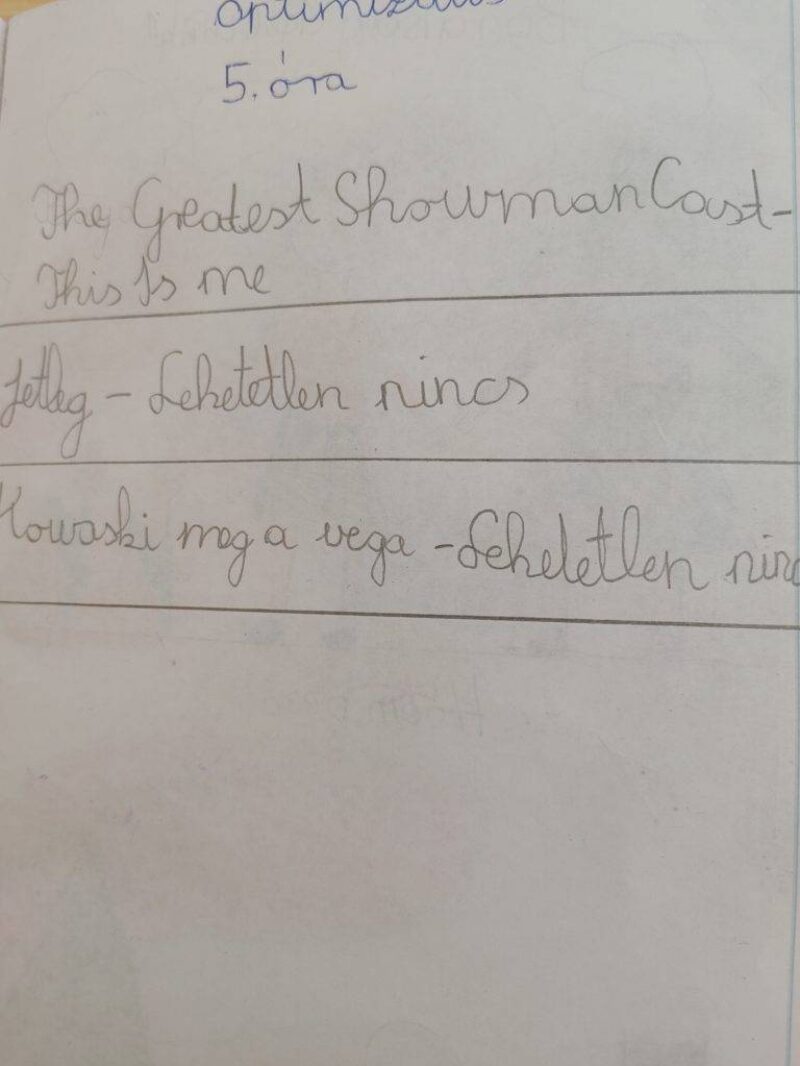 optimizálás
5. óra
The Greatest Showman Cast -
This Is me
Jetlag - Lehetetlen nincs
Kowaski meg a vega - Lehetetlen ninc